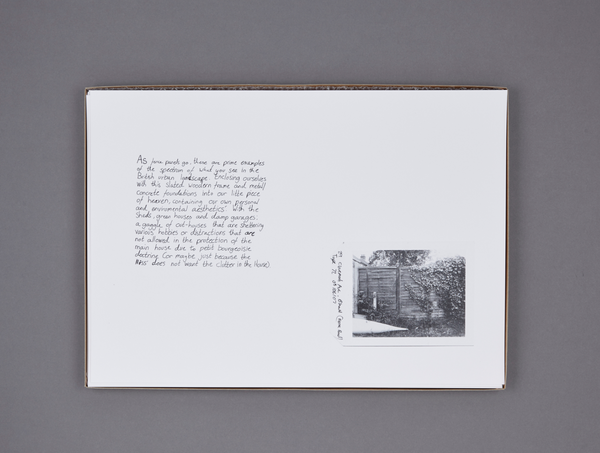 As fence panels go, these are prime examples
of the spectrum of what you see in the
British urban landscape. Enclosing ourselves
with this slated wooden frame and metal/
concrete foundations into our little piece
of heaven, containing our own personal
and environmental 'aesthetics' with the
sheds, green houses and damp garages:
a gaggle of out-houses that are sheltering
various hobbies or distractions that are
not allowed in the protection of the
main house due to petit bourgeoisie
doctrine (or maybe just because the
does not want the clutter in the house).